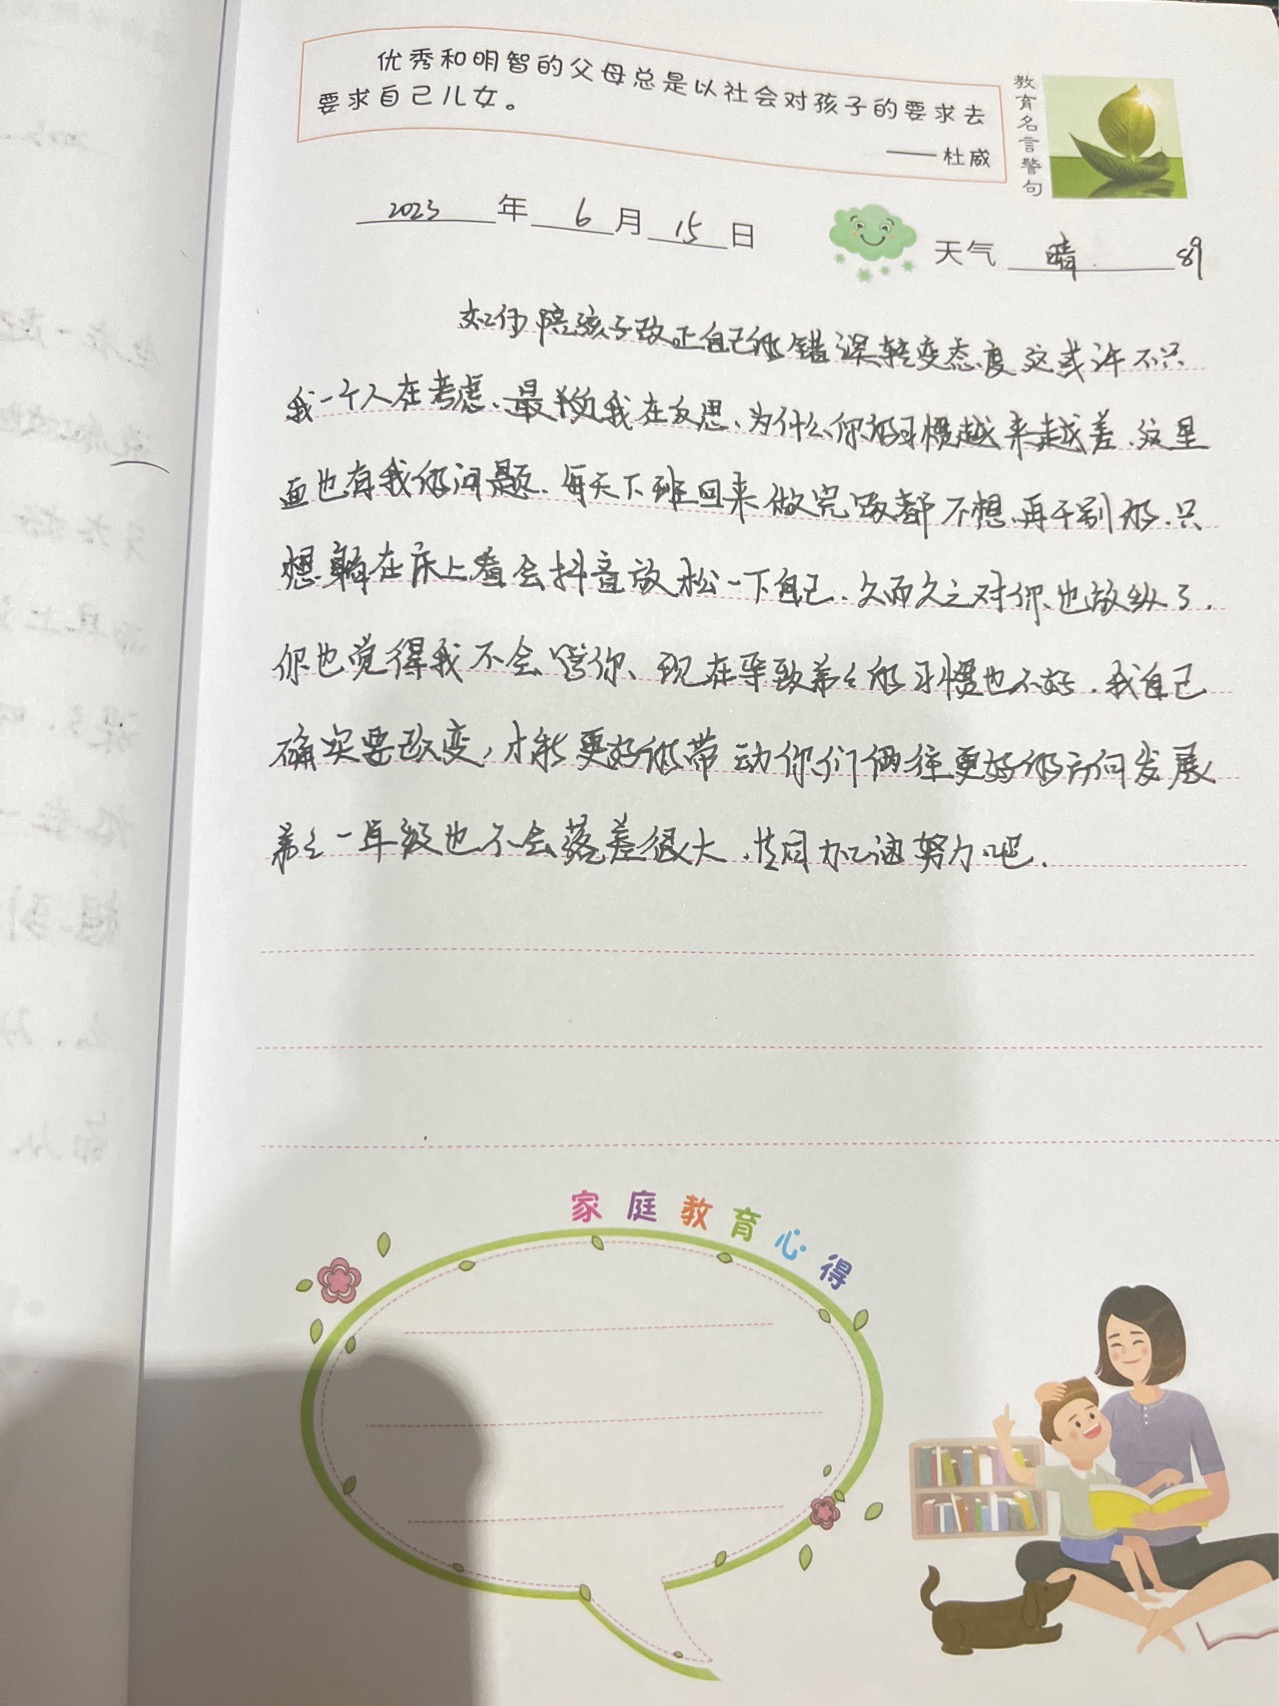 优秀和明智的父母总是以社会对孩子的要求去
要求自己儿女。
——杜威
教育名言警句
2023年6月15日
天气 晴. 89
如何陪孩子改正自己的错误转变态度这或许不只
我一个人在考虑、最近我在反思、为什么你的习惯越来越差、这里
面也有我的问题、每天下班回来做完饭都不想再干别的、只
想躺在床上看会抖音放松一下自己、久而久之对你也放纵了.
你也觉得我不会管你、现在导致弟弟的习惯也不好、我自己
确实要改变,才能更好的带动你们俩往更好的方向发展
弟弟一年级也不会落差很大、共同加油努力吧.
家庭教育心得